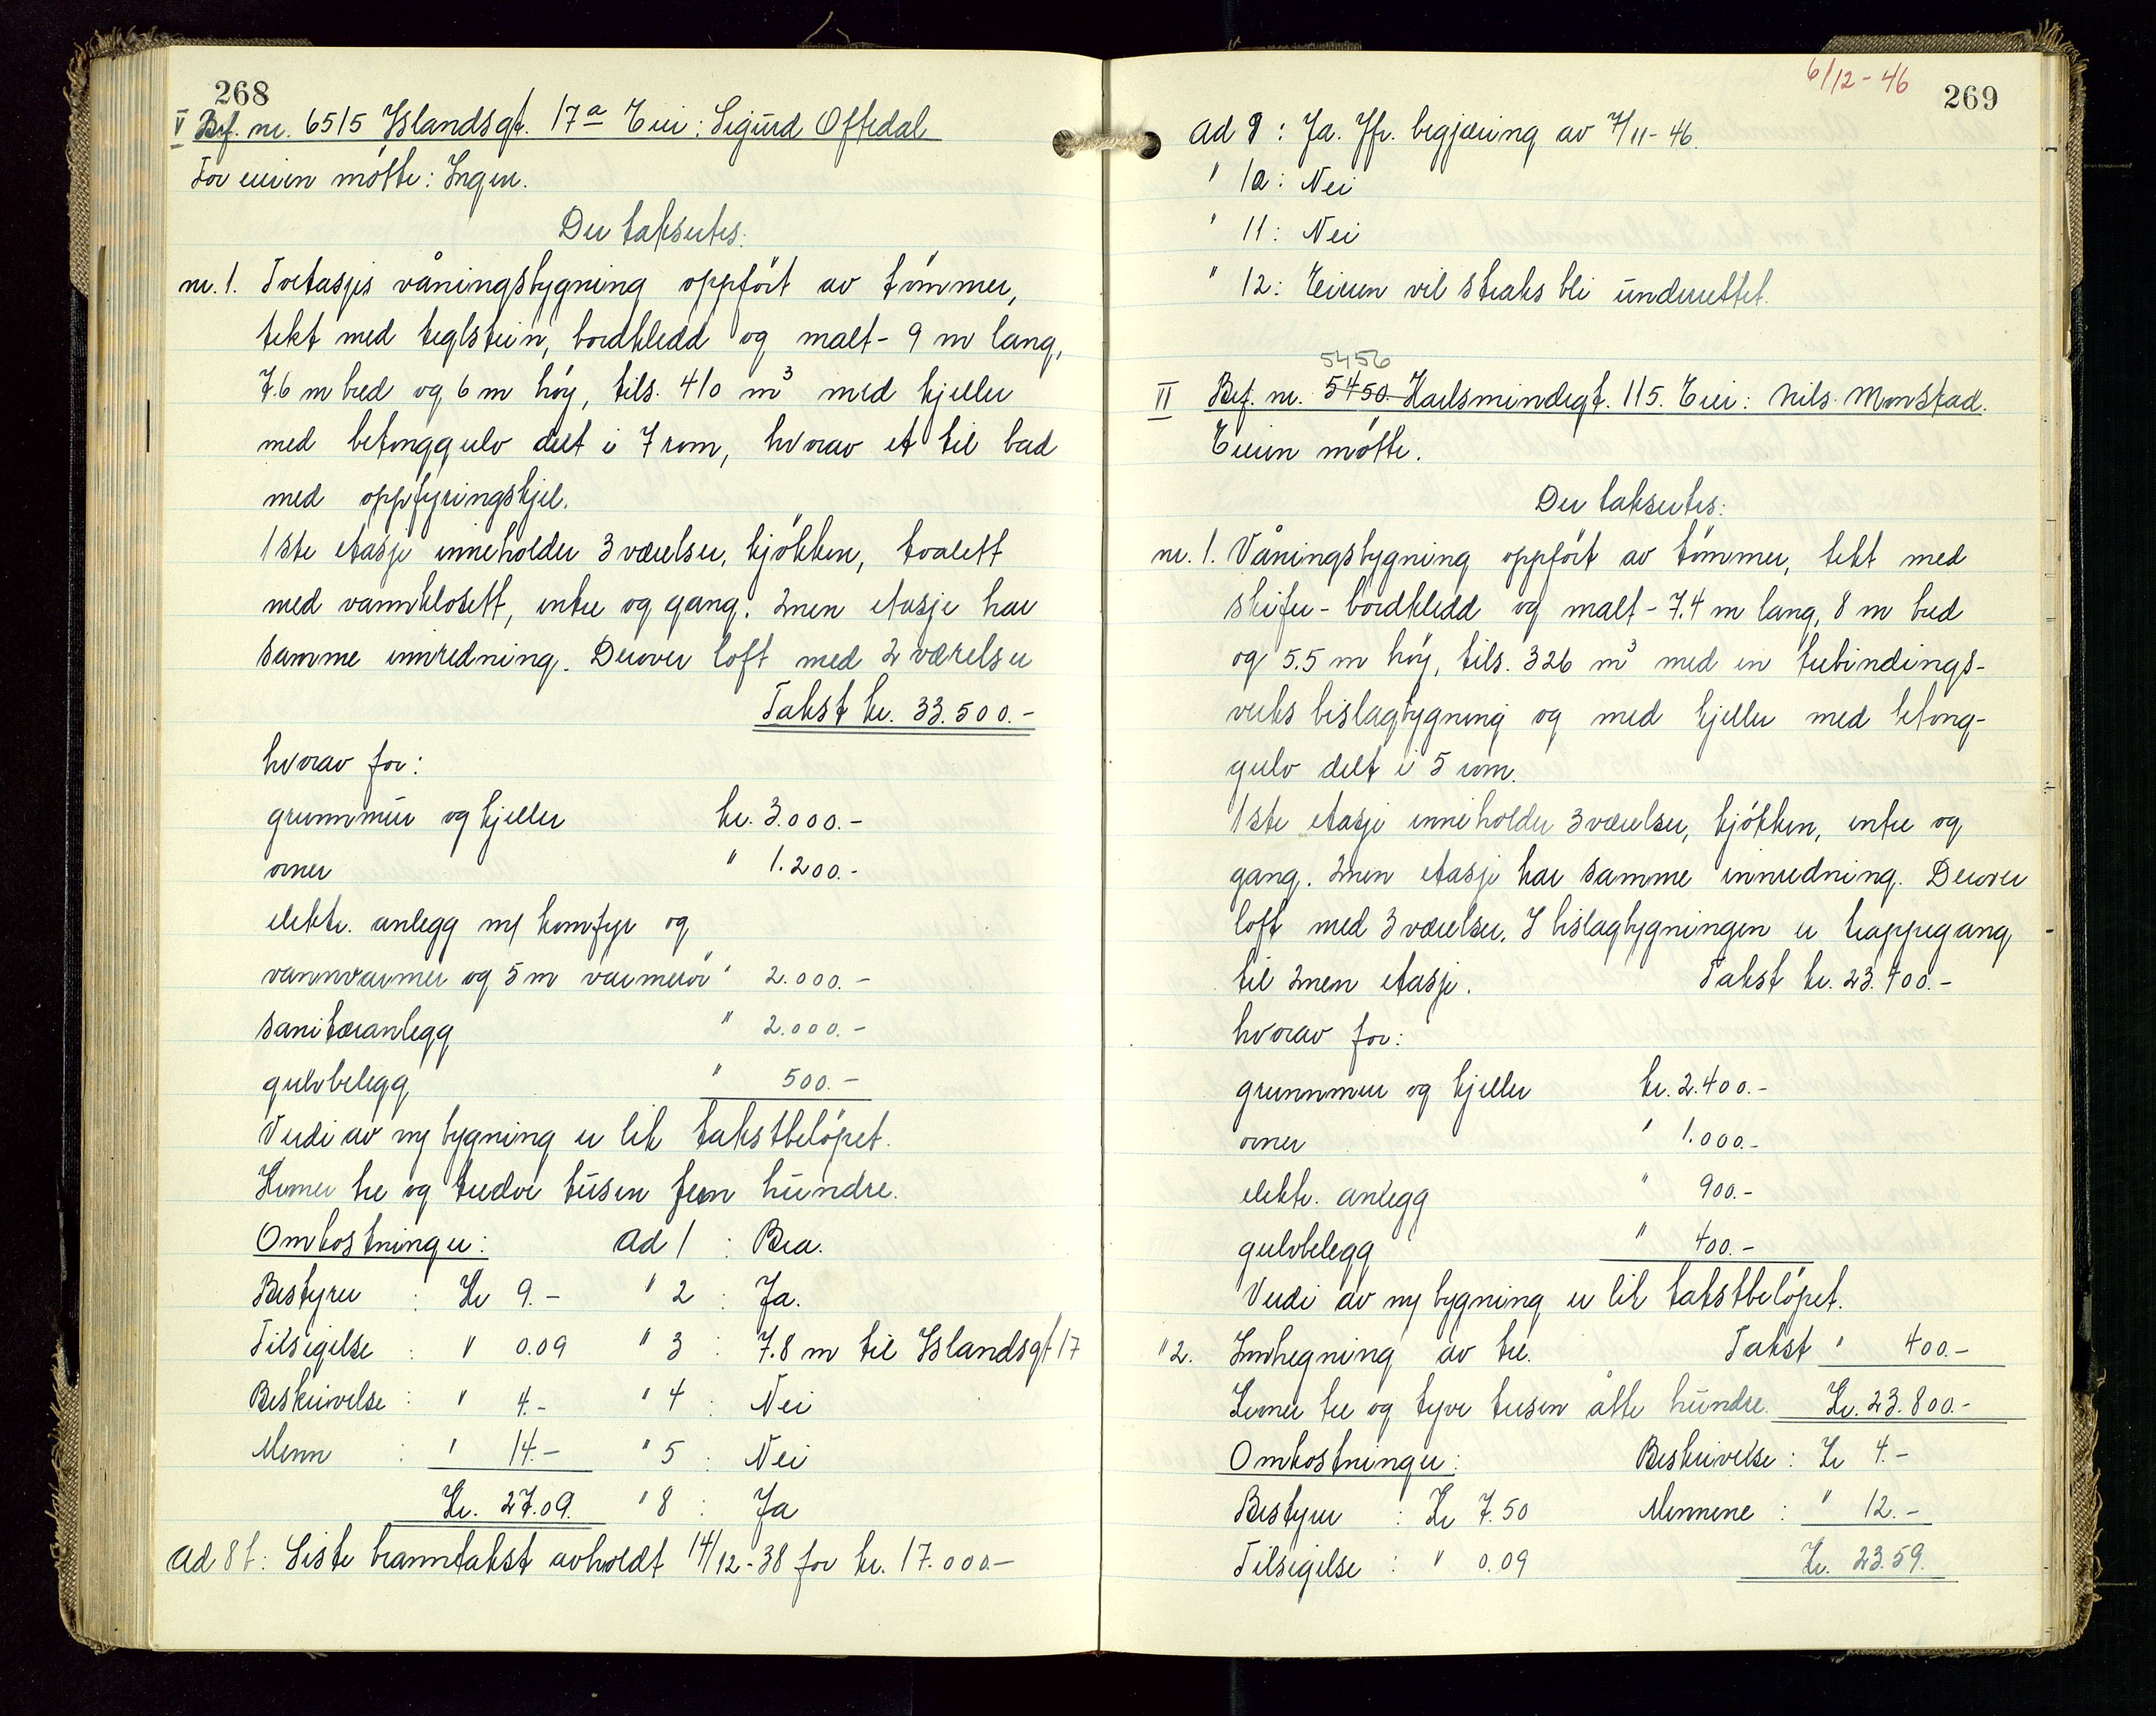 268
V Brf. nr. 6515 Islandsgt. 17a Eier: Sigurd Oftedal
For eieren møtte: Ingen.
Der takseres:
nr. 1. Toetasjes våningsbygning oppført av tømmer,
tekt med teglstein, bordkledd og malt - 9 m lang,
7.6 m bred og 6 m høy, tils. 410 m³ med kjeller
med betonggulv delt i 7 rom, hvorav et til bad
med oppfyringskjel.
1ste etasje inneholder 3 værelser, kjøkken, toalett
med vannklosett, entre og gang. 2nen etasje har
samme innredning. Derover loft med 2 værelser
Takst kr. 33.500.-
hvorav for:
grunnmur og kjeller kr. 3.000.-
ovner " 1.200.-
elektr. anlegg m/ komfyr og
vannvarmer og 5 m varmerør " 2.000.-
sanitæranlegg " 2.000.-
gulvbelegg " 500.-
Verdi av ny bygning er lik takstbeløpet.
Kroner tre og tredve tusen fem hundre.
Omkostninger: Ad 1 : Bra.
Bestyrer : Kr 9.- " 2 : Ja.
Tilsigelse : " 0.09 " 3 : 7.8 m til Islandsgt 17
Beskrivelse : " 4.- " 4 : Nei
Menn : " 14.- " 5 : Nei
Kr. 27.09. " 8 : Ja
Ad 8 b: Siste branntakst avholdt 14/12-38 for kr. 17.000.-
6/12-46
269
Ad 9 : Ja. Jfr. begjæring av 7/11-46.
" 10: Nei
" 11: Nei
" 12: Eieren vil straks bli underrettet.
5456
VI Brf. nr. 5450 Karlsmindegt. 115. Eier: Nils Monstad.
Eieren møtte.
Der takseres:
nr. 1. Våningsbygning oppført av tømmer, tekt med
skifer - bordkledd og malt - 7.4 m lang, 8 m bred
og 5.5 m høy, tils. 326 m³ med en trebindings-
verks bislagbygning og med kjeller med betong-
gulv delt i 5 rom.
1ste etasje inneholder 3 værelser, kjøkken, entre og
gang. 2nen etasje har samme innredning. Derover
loft med 3 værelser. I bislagbygningen er trappegang
til 2nen etasje. Takst kr. 23.400.-
hvorav for:
grunnmur og kjeller kr. 2.400.-
ovner " 1.000.-
elektr. anlegg " 900.-
gulvbelegg " 400.-
Verdi av ny bygning er lik takstbeløpet.
" 2. Innhegning av tre. Takst " 400.-
Kroner tre og tyve tusen åtte hundre. Kr. 23.800.-
Omkostninger: Beskrivelse : Kr 4.-
Bestyrer : Kr 7.50 Mennene : " 12.-
Tilsigelse : " 0.09 Kr. 23.59.